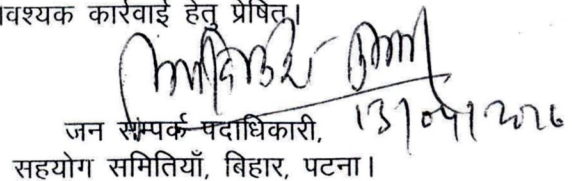 वश्यक कार्रवाई हेतु प्रेषित।
जन सम्पर्क पदाधिकारी,
सहयोग समितियाँ, बिहार, पटना।